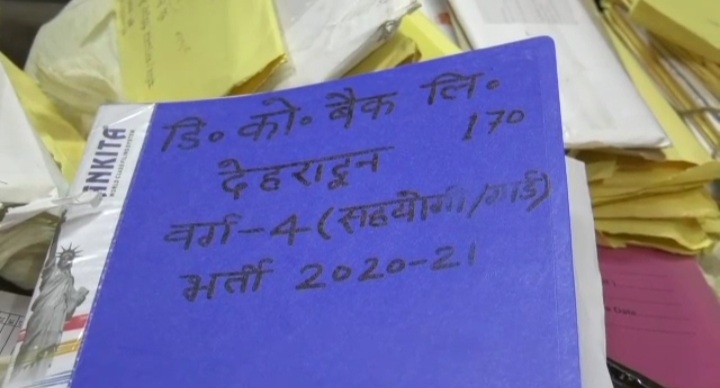 डि॰ को॰ बैक लि॰
170
देहरादून
वर्ग-4 (सहयोगी/गार्ड)
भर्ती 2020-21
ANKITA